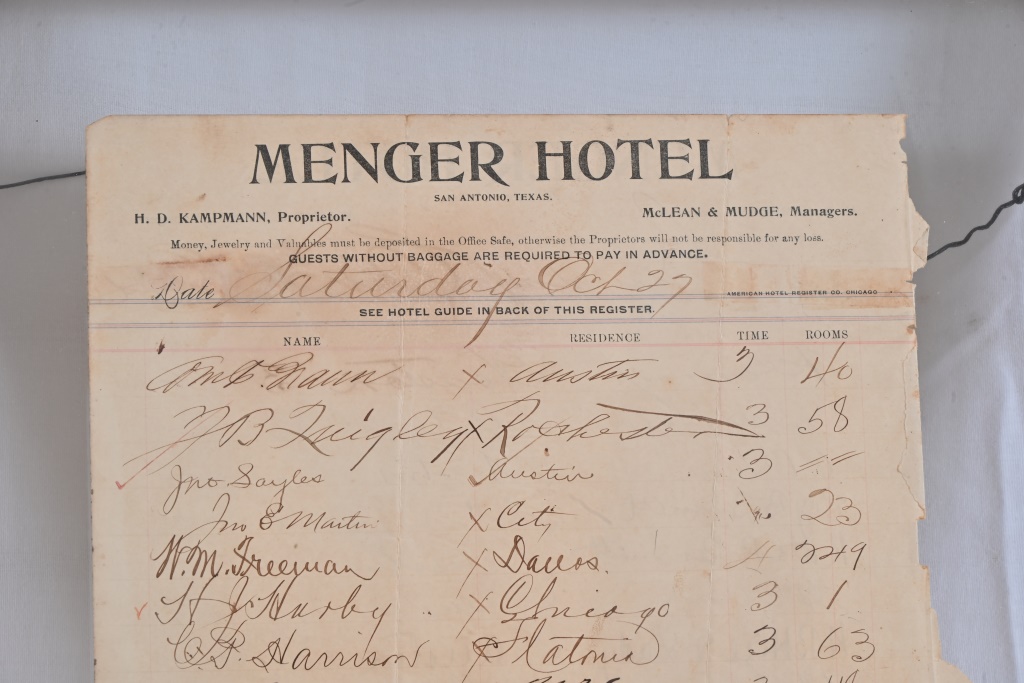 MENGER HOTEL
SAN ANTONIO, TEXAS.
H. D. KAMPMANN, Proprietor. McLEAN & MUDGE, Managers.
Money, Jewelry and Valuables must be deposited in the Office Safe, otherwise the Proprietors will not be responsible for any loss.
GUESTS WITHOUT BAGGAGE ARE REQUIRED TO PAY IN ADVANCE.
Date Saturday Oct 27 AMERICAN HOTEL REGISTER CO. CHICAGO
SEE HOTEL GUIDE IN BACK OF THIS REGISTER.
NAME RESIDENCE TIME ROOMS
X Austin 3 40
B Quigley X Rochester 3 58
Jno Sayles Austin 3 "
Jno E Martin X City 23
W. M. Freeman X Dallas. 4 249
H J Harby X Chicago 3 1
C B. Harrison X Flatonia 3 63